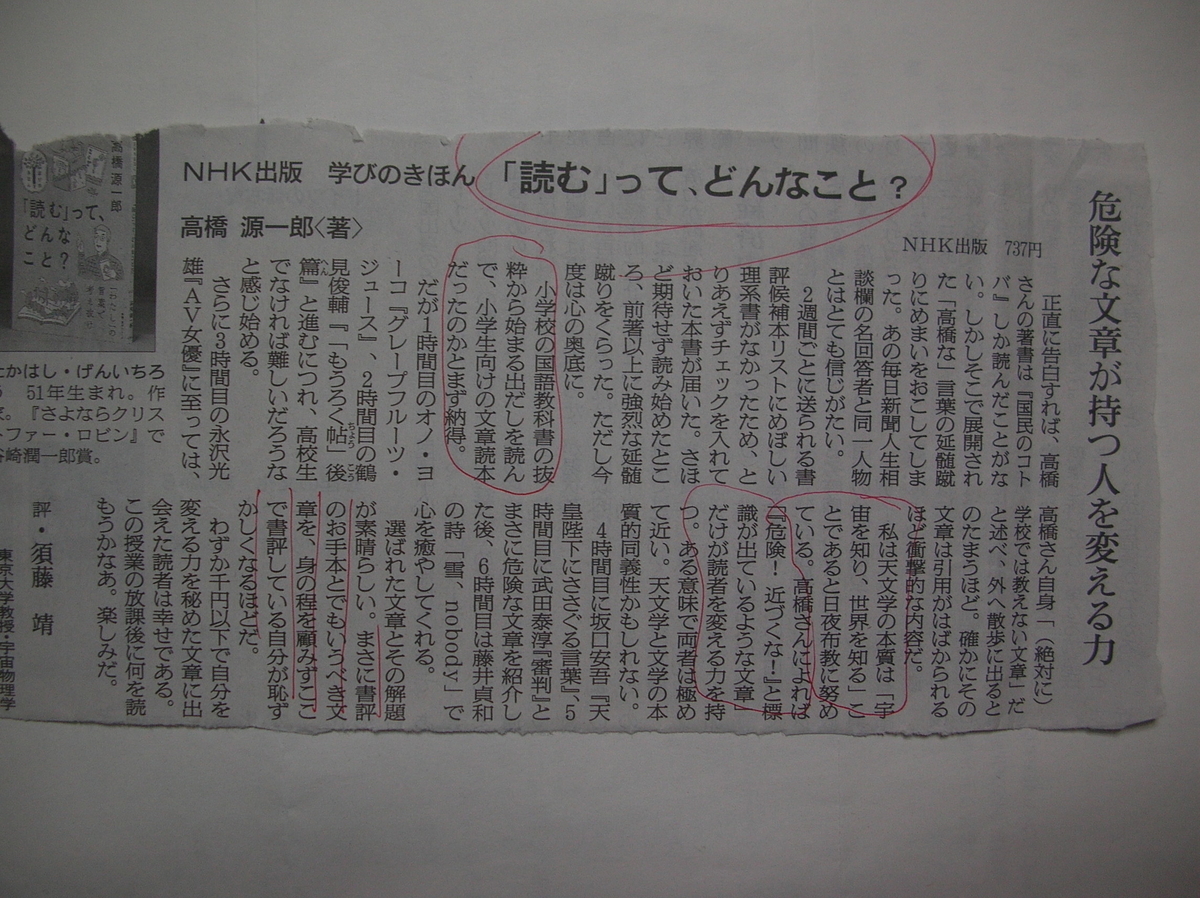 危険な文章が持つ人を変える力
NHK出版　学びのきほん　「読む」って、どんなこと？
高橋 源一郎〈著〉
NHK出版　737円
正直に告白すれば、高橋
さんの著書は『国民のコト
バ』しか読んだことがな
い。しかしそこで展開され
た「高橋な」言葉の延髄蹴
りにめまいをおこしてしま
った。あの毎日新聞人生相
談欄の名回答者と同一人物
とはとても信じがたい。
２週間ごとに送られる書
評候補本リストにめぼしい
理系書がなかったため、と
りあえずチェックを入れて
おいた本書が届いた。さほ
ど期待せず読み始めたとこ
ろ、前著以上に強烈な延髄
蹴りをくらった。ただし今
度は心の奥底に。
小学校の国語教科書の抜
粋から始まる出だしを読ん
で、小学生向けの文章読本
だったのかとまず納得。
だが１時間目のオノ・ヨ
ーコ『グレープフルーツ・
ジュース』、２時間目の鶴
見俊輔『「もうろく帖」後
篇』と進むにつれ、高校生
でなければ難しいだろうな
と感じ始める。
さらに３時間目の永沢光
雄『ＡＶ女優』に至っては、
高橋さん自身「（絶対に）
学校では教えない文章」だ
と述べ、外へ散歩に出ると
のたまうほど。確かにその
文章は引用がはばかられる
ほど衝撃的な内容だ。
私は天文学の本質は「宇
宙を知り、世界を知る」こ
とであると日夜布教に努め
ている。高橋さんによれば
『危険！ 近づくな！』と標
識が出ているような文章
だけが読者を変える力を持
つ。ある意味で両者は極め
て近い。天文学と文学の本
質的同義性かもしれない。
４時間目に坂口安吾『天
皇陛下にささぐる言葉』、５
時間目に武田泰淳『審判』と
まさに危険な文章を紹介し
た後、６時間目は藤井貞和
の詩「雪、nobody」で
心を癒やしてくれる。
選ばれた文章とその解題
が素晴らしい。まさに書評
のお手本とでもいうべき文
章を、身の程を顧みずここ
で書評している自分が恥ず
かしくなるほどだ。
わずか千円以下で自分を
変える力を秘めた文章に出
会えた読者は幸せである。
この授業の放課後に何を読
もうかなあ。楽しみだ。
評・須藤 靖
東京大学教授・宇宙物理学
高橋源一郎
「読む」って、
どんな
こと？
たかはし・げんいちろ
う　51年生まれ。作
家。『さよならクリス
トファー・ロビン』で
谷崎潤一郎賞。